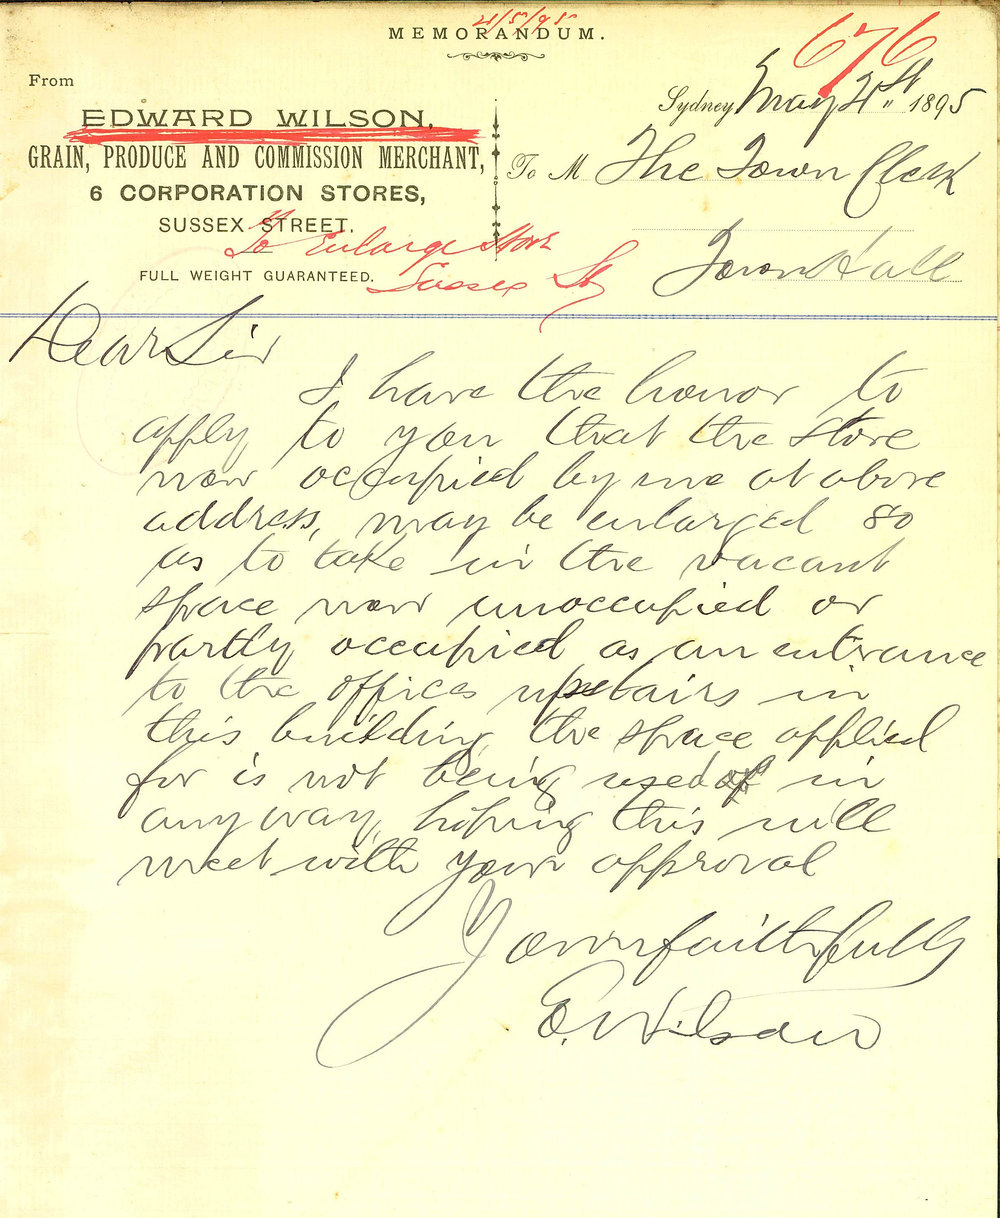 21/5/95
MEMORANDUM.
676
From
Sydney May 21st 1895
EDWARD WILSON,
GRAIN, PRODUCE AND COMMISSION MERCHANT,
To M The Town Clerk
6 CORPORATION STORES,
SUSSEX STREET.
To Enlarge Store
Sussex St
Town Hall
FULL WEIGHT GUARANTEED.
Dear Sir
I have the honor to
apply to you that the store
now occupied by me at above
address, may be enlarged so
as to take in the vacant
space now unoccupied or
partly occupied as an entrance
to the offices upstairs in
this building, the space applied
for is not being used in
any way, hoping this will
meet with your approval
Yours faithfully
E. Wilson